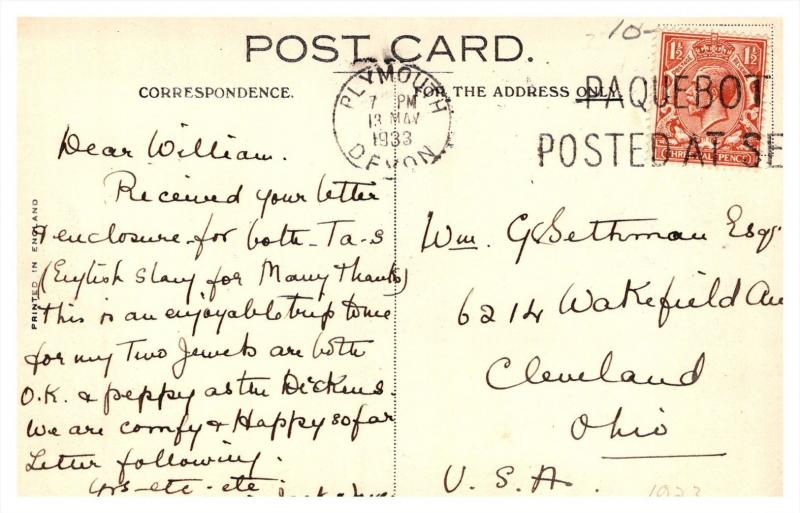 POST CARD.
CORRESPONDENCE.
FOR THE ADDRESS ONLY.
PLYMOUTH
7 PM
13 MAY
1933
DEVON
PAQUEBOT
POSTED AT SE
1½ 1½
THREE HALFPENCE
10-
PRINTED IN ENGLAND
Dear William.
Received your letter
& enclosure for both - Ta-s
(English Slang for Many Thanks)
this is an enjoyable trip to me
for my Two Jewels are both
O.K. & peppy as the Dickens.
We are comfy & Happy so far
Letter following.
Yrs - etc - etc.
Wm. G Sethman Esq.
6214 Wakefield Av
Cleveland
Ohio
U.S.A.
1933